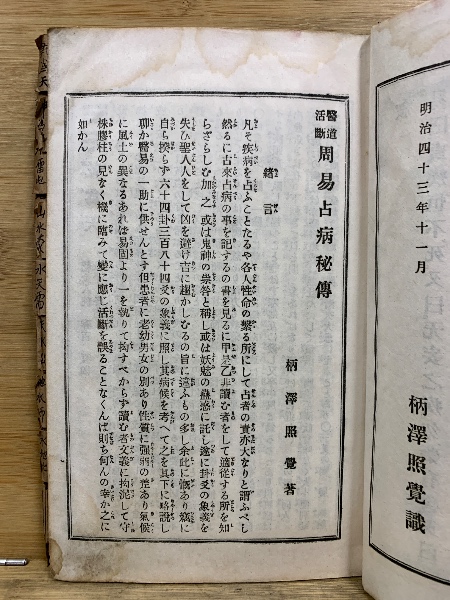 明治四十三年十一月
柄澤照覺識
醫道活斷 周易占病秘傳
柄澤照覺著
緖言
凡そ疾病を占ふことたるや各人性命の繋る所にして占者の責亦大なりと謂ふべし
然るに古來占病の事を記するの書を見るに甲是乙非讀む者をして適從する所を知
らざらしむ加之或は鬼神の祟咎と稱し或は妖魅の蠱惑に託し遂に卦爻の象義を
失ひ聖人人をして凶を避け吉に趨かしむるの旨に違ふもの多し余此に慨あり
自ら揆らず六十四卦三百八十四爻の象義に照し其病候を考へて之を其下に略說し
聊か醫易の一助に供せんとす但患者に老幼男女の別あり性質に强弱の差あり氣候
に風土の異なるあれば易固より一を執りて拘すべからず讀む者文義に拘泥して守
株膠柱の見なく機に臨みて變に應じ活斷を誤ることなくんば則ち何んの幸か之に
如かん